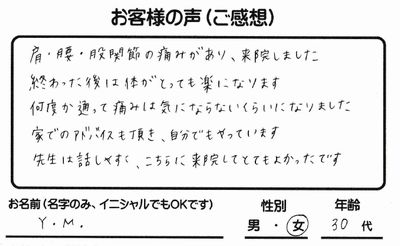 お客様の声(ご感想)
肩・腰・股関節の痛みがあり、来院しました
終わった後は体がとっても楽になります
何度か通って痛みは気にならないくらいになりました
家でのアドバイスも頂き、自分でもやっています
先生は話しやすく、こちらに来院してとてもよかったです
お名前(名字のみ、イニシャルでもOKです) 性別 年齢
Y.M. 男・女 30代